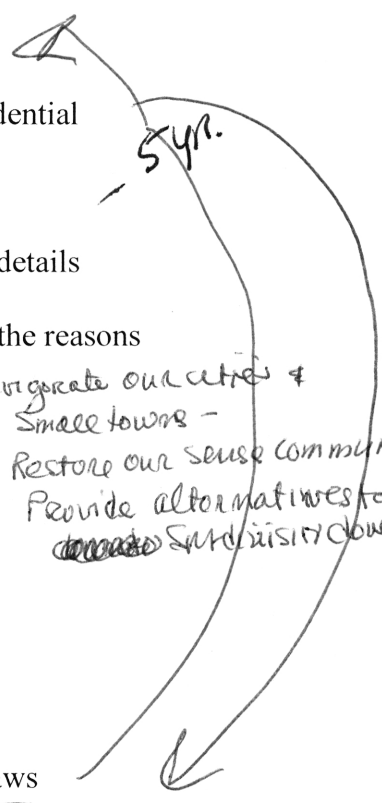 dential
5 yr.
details
the reasons
vigorate our cities &
Small towns -
Restore our sense commun
Provide alternatives to
aws